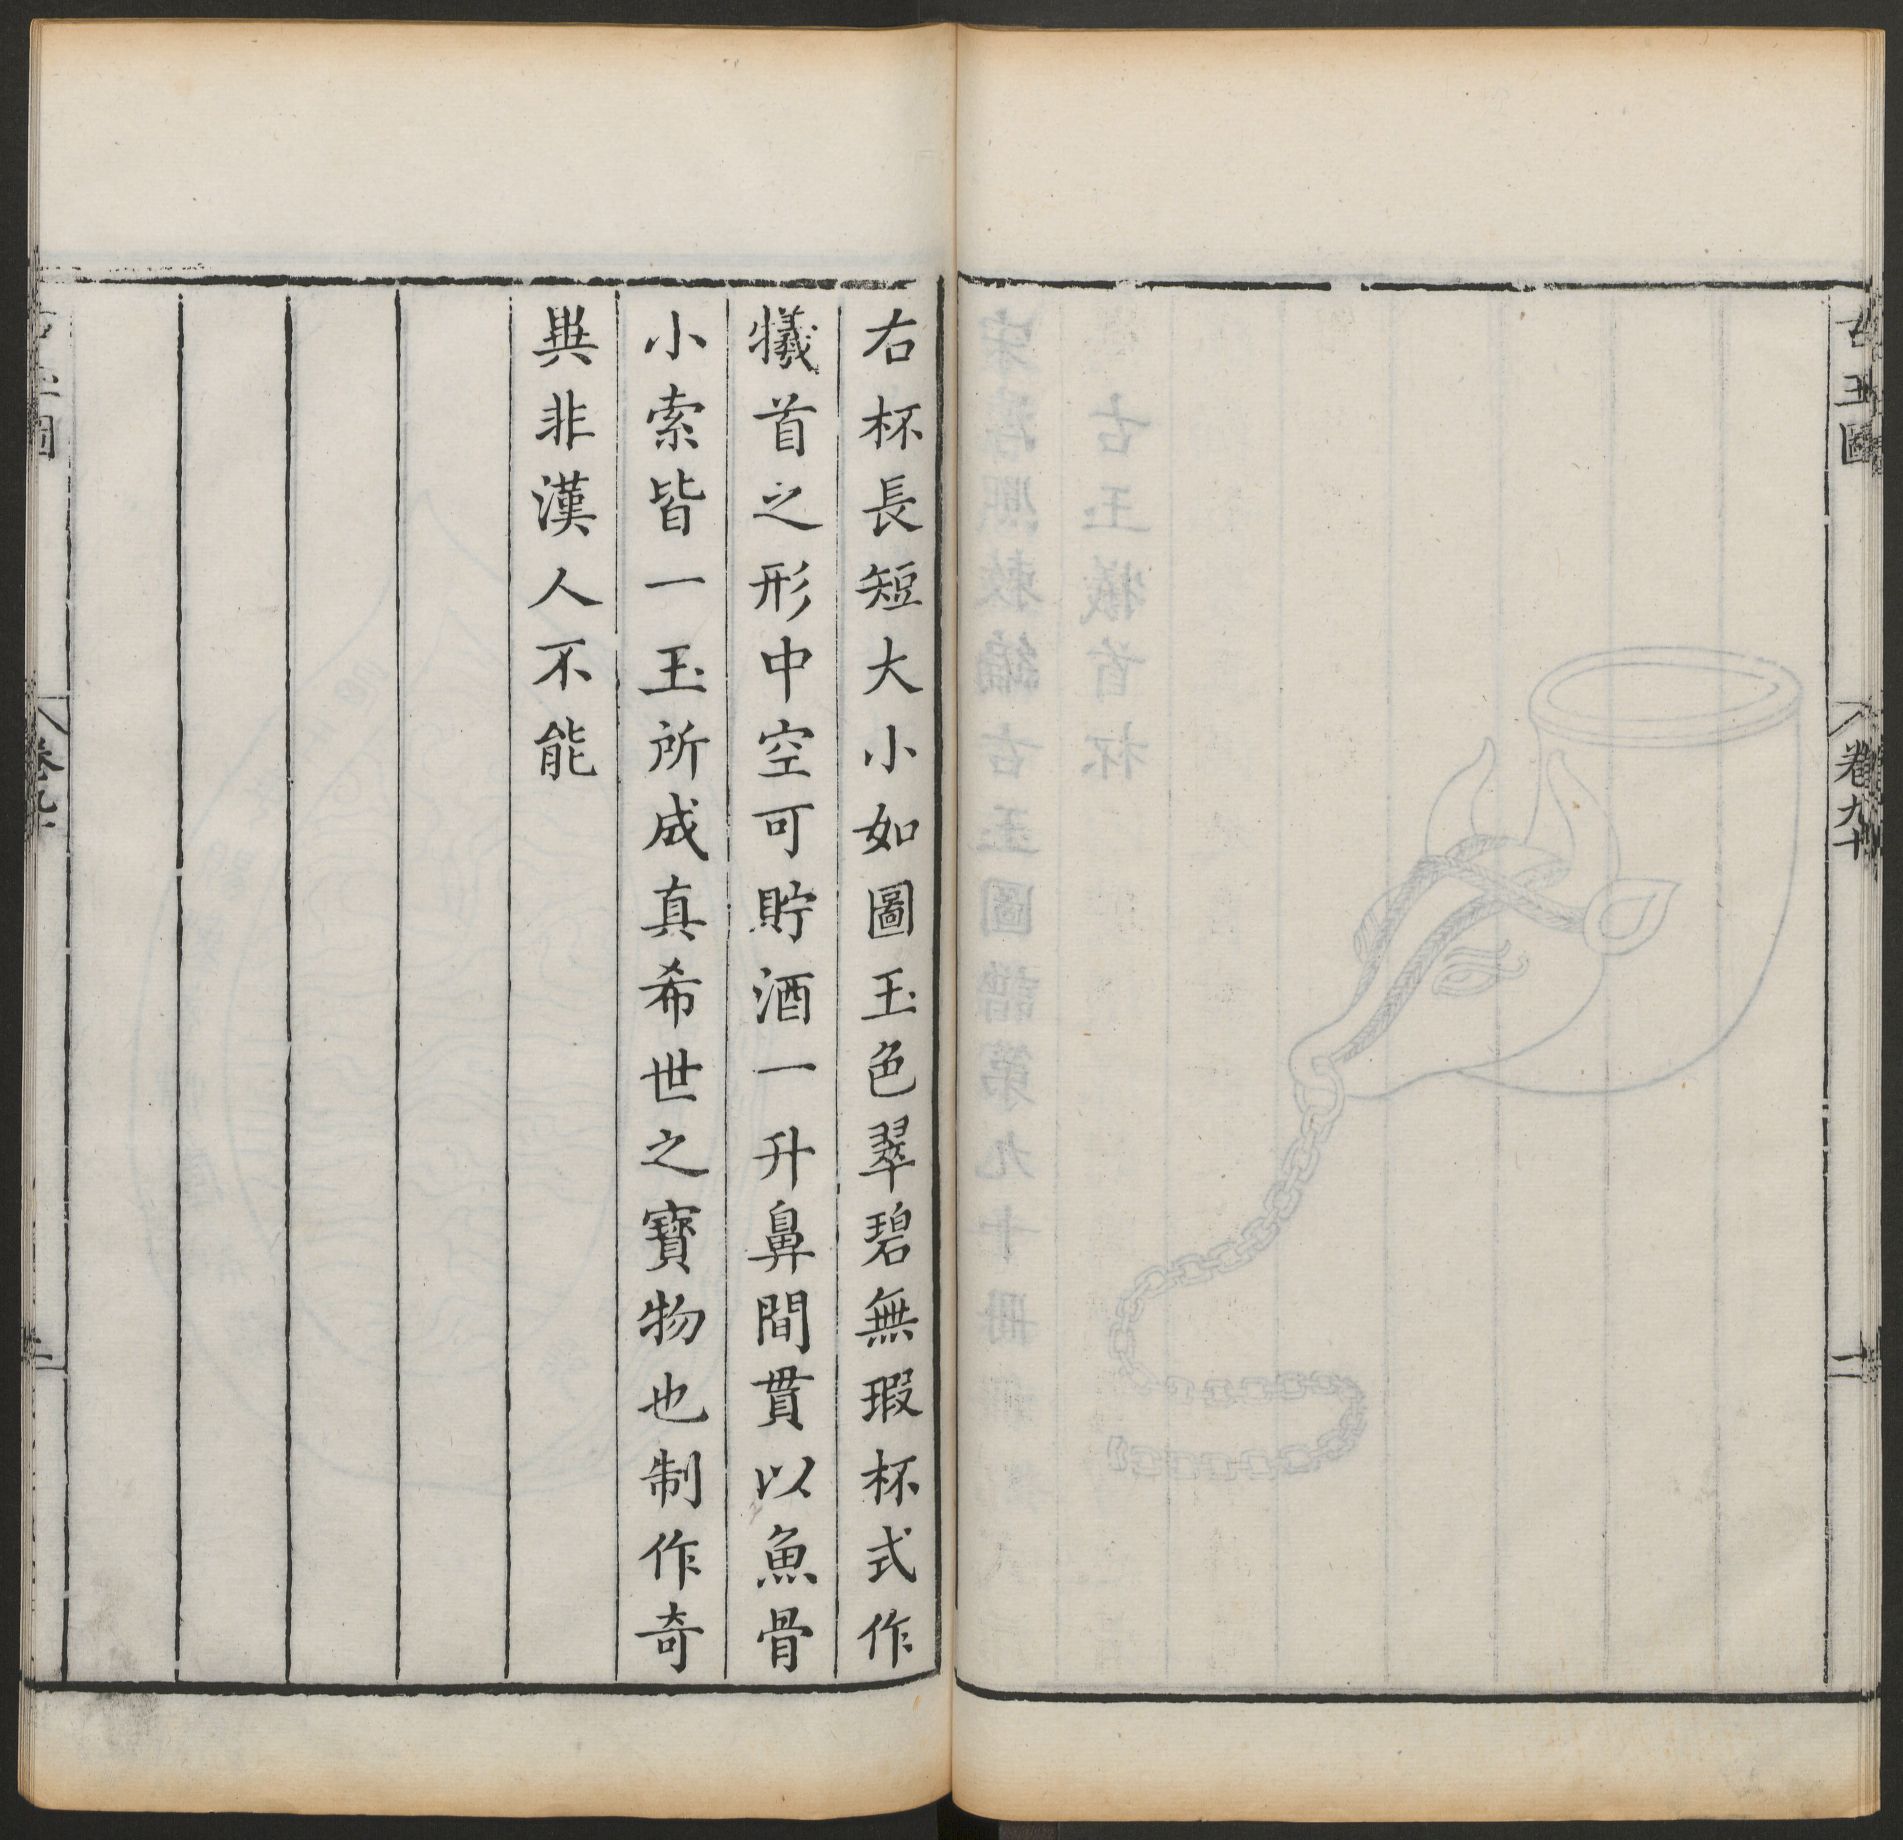 古玉圖
卷九十
二
右杯長短大小如圖玉色翠碧無瑕杯式作
犧首之形中空可貯酒一升鼻間貫以魚骨
小索皆一玉所成真希世之寶物也制作奇
異非漢人不能